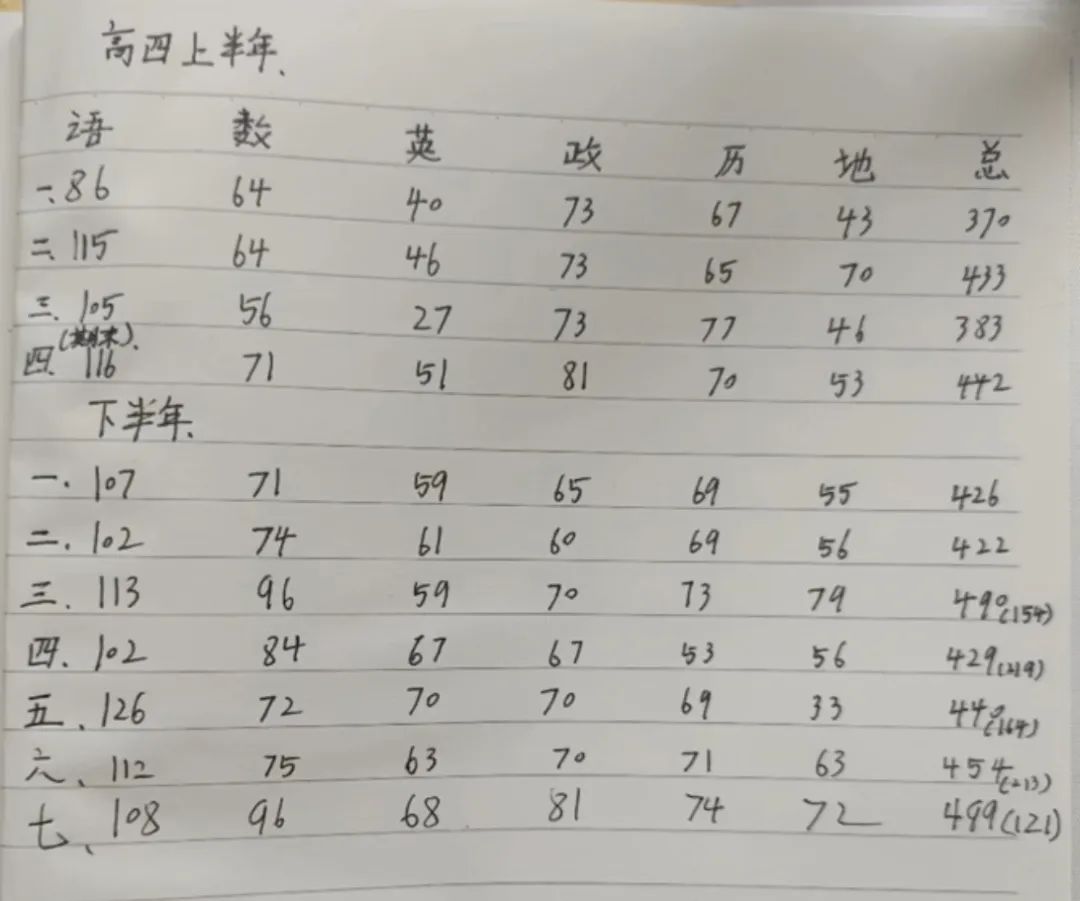 高四上半年、
语 数 英 政 历 地 总
一、86 64 40 73 67 43 370
二、115 64 46 73 65 70 433
三、105 56 27 73 77 46 383
(期末).
四、116 71 51 81 70 53 442
下半年、
一、107 71 59 65 69 55 426
二、102 74 61 60 69 56 422
三、113 96 59 70 73 79 490(154)
四、102 84 67 67 53 56 429(219)
五、126 72 70 70 69 33 440(164)
六、112 75 63 70 71 63 454(213)
七、108 96 68 81 74 72 499(121)